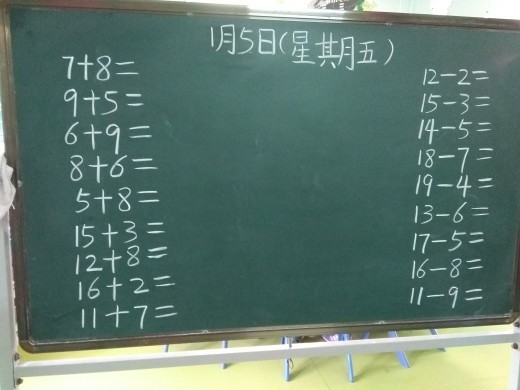 1月5日(星期五)
7+8=
9+5=
6+9=
8+6=
5+8=
15+3=
12+8=
16+2=
11+7=
12-2=
15-3=
14-5=
18-7=
19-4=
13-6=
17-5=
16-8=
11-9=